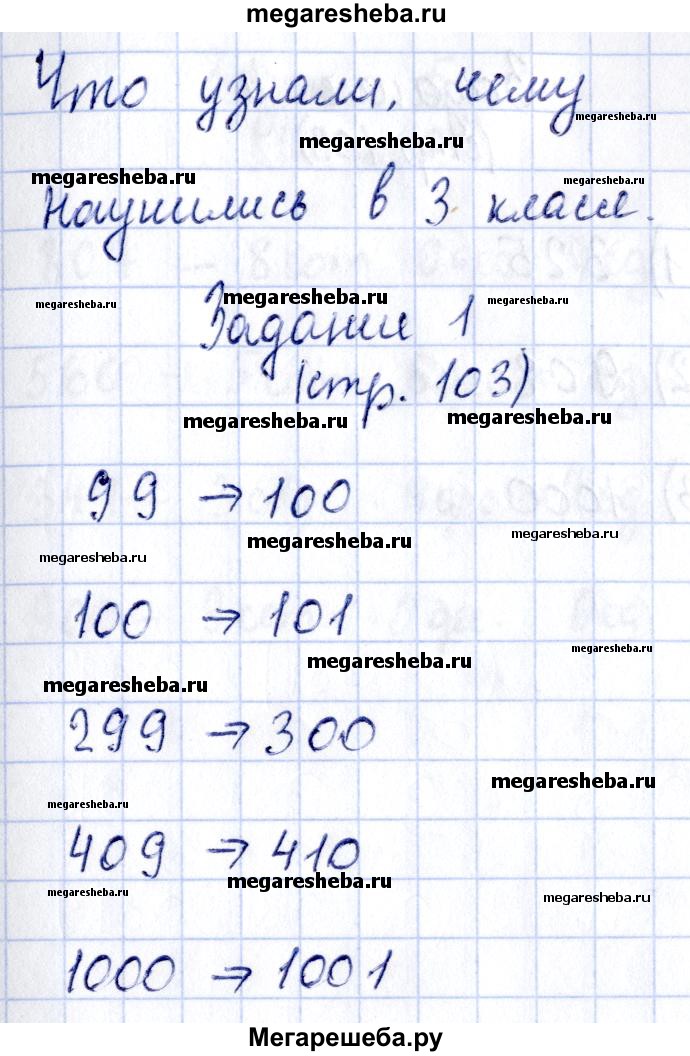 megaresheba.ru
Что узнали, чему
megaresheba.ru
megaresheba.ru
megaresheba.ru
megaresheba.ru
научились в 3 классе.
megaresheba.ru
megaresheba.ru
megaresheba.ru
Задание 1
(стр. 103)
megaresheba.ru
megaresheba.ru
99 → 100
megaresheba.ru
megaresheba.ru
megaresheba.ru
100 → 101
megaresheba.ru
megaresheba.ru
megaresheba.ru
299 → 300
megaresheba.ru
megaresheba.ru
409 → 410
megaresheba.ru
megaresheba.ru
megaresheba.ru
1000 → 1001
Мегарешеба.ру